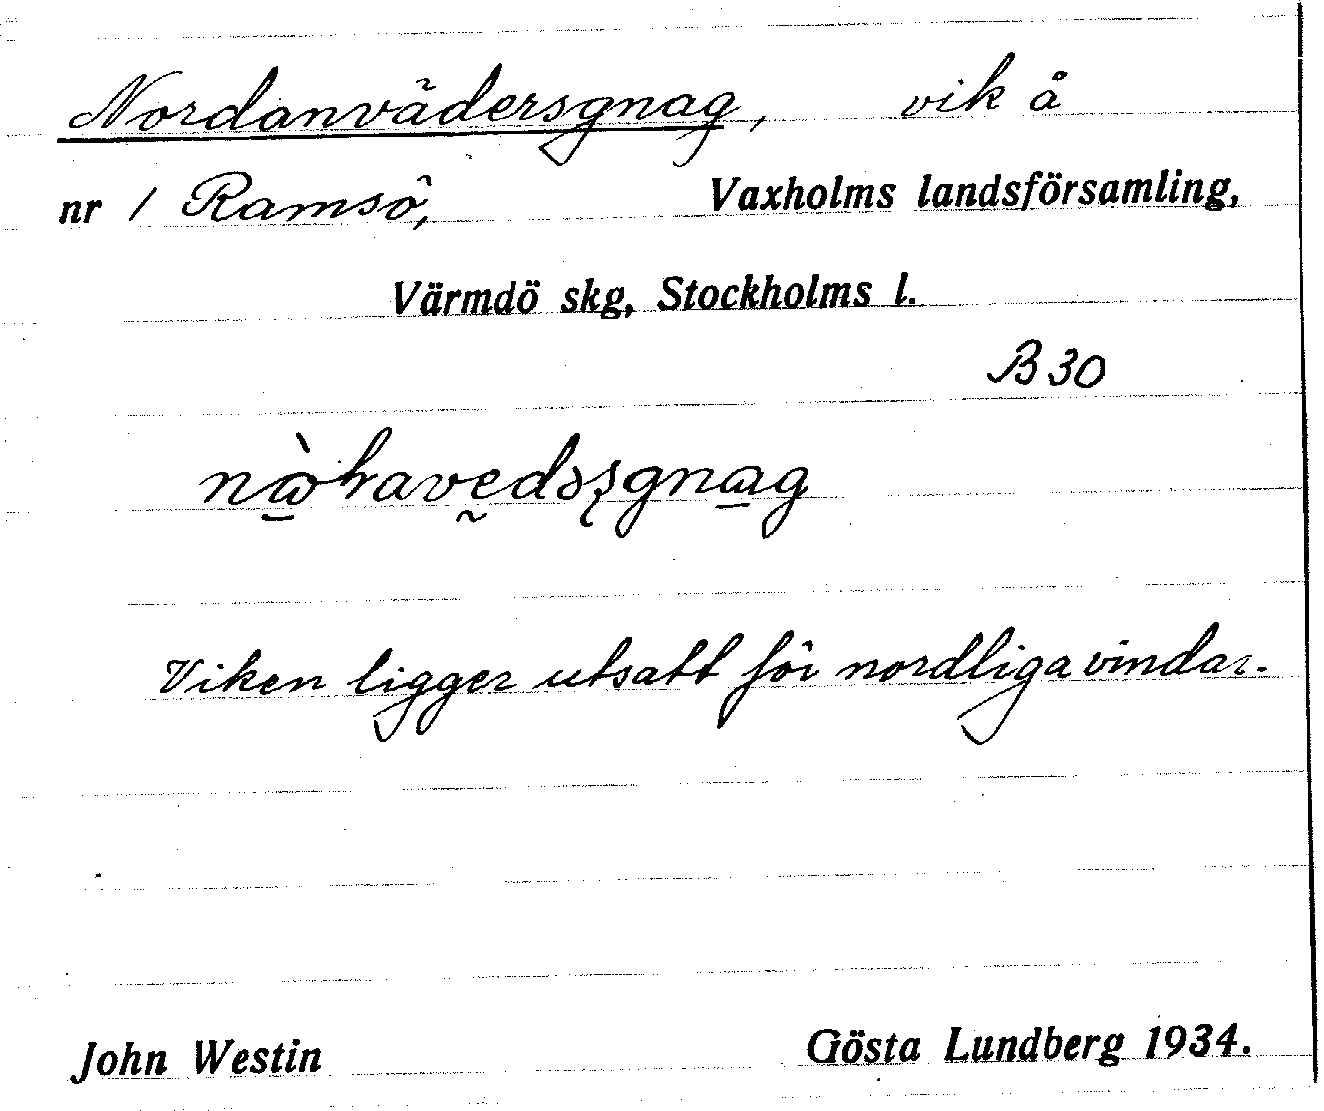 Nordanvädersgnag, vik å
nr 1 Ramsö, Vaxholms landsförsamling,
Värmdö skg, Stockholms l.
B 30
Viken ligger utsatt för nordliga vindar.
John Westin Gösta Lundberg 1934.